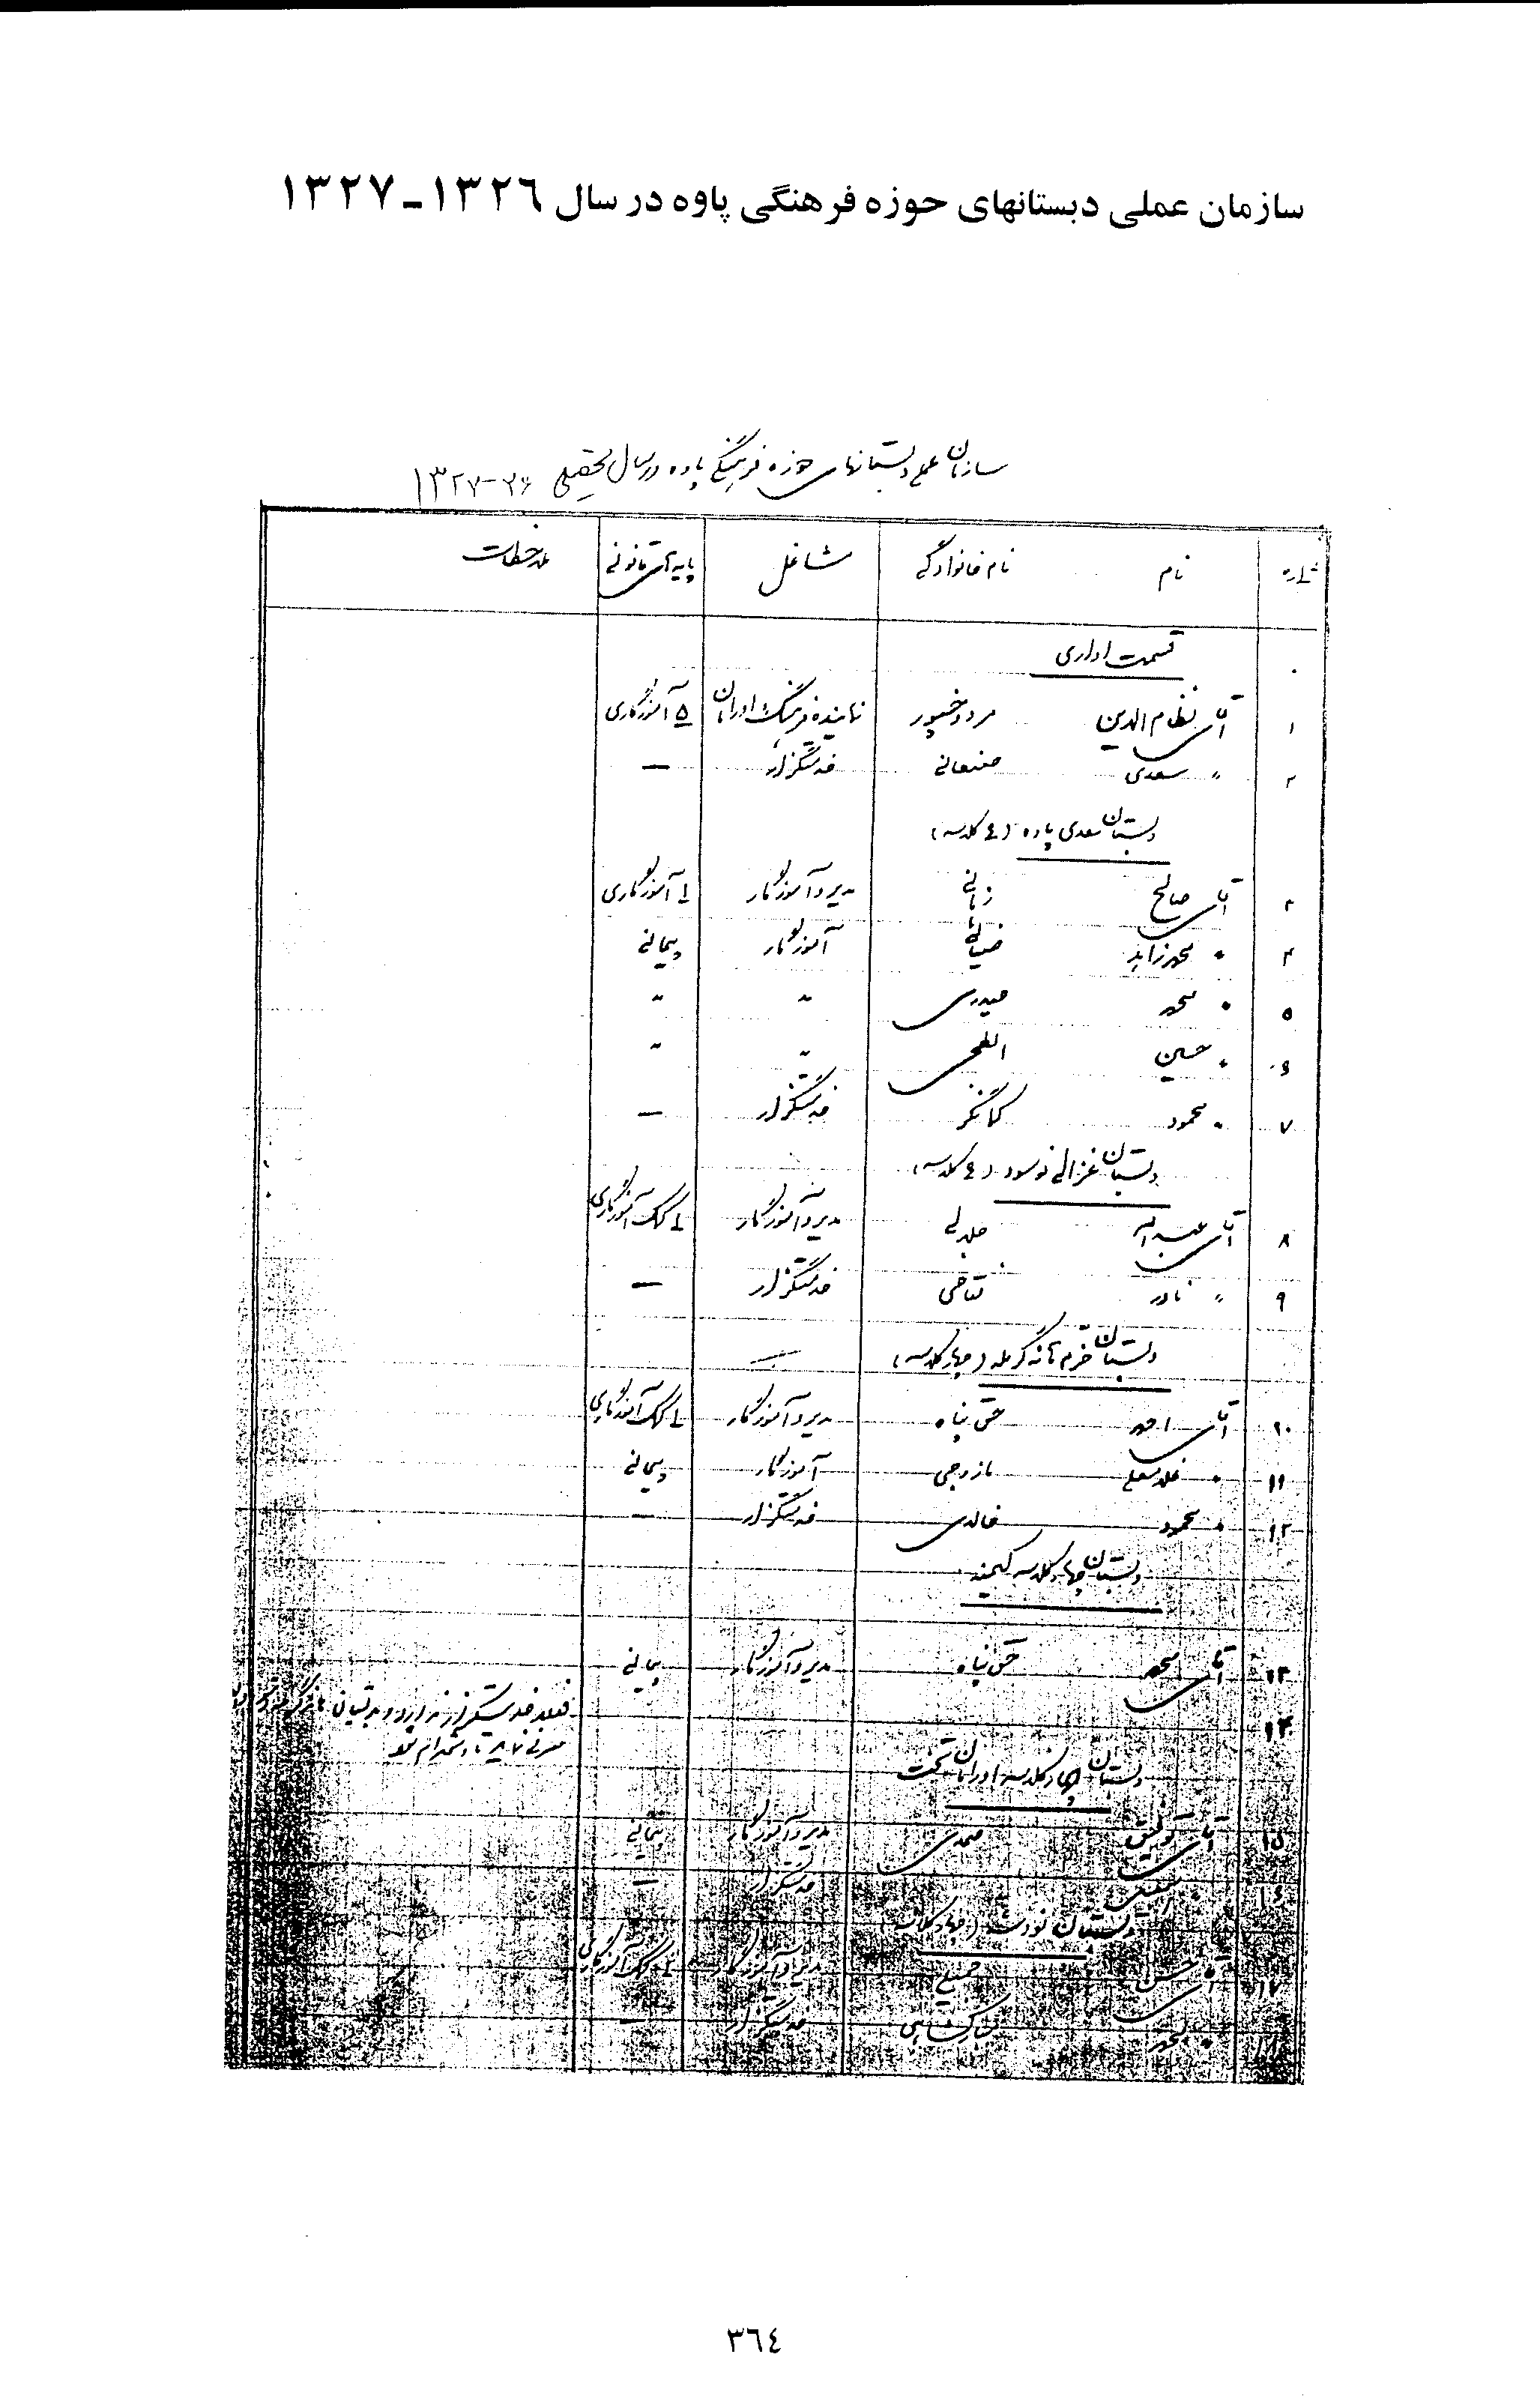 سازمان عملی دبستانهای حوزه فرهنگی پاوه در سال ١٣٢٦ـ١٣٢٧
سازمان عملی دبستانهای حوزه فرهنگی پاوه در سال تحصیلی ۲۶-۱۳۲۷
شماره نام نام خانوادگی شاغل پایه‌ی قانونی ملاحظات
قسمت اداری
۱ آقای نظام الدین مردوخپور نماینده فرهنگ اورامان ۵ آموزگاری
۲ " سعدی صنعانی خدمتگزار —
دبستان سعدی پاوه (۴ کلاسه)
۳ آقای صالح زمانی مدیر و آموزگار ۱ آموزگاری
۴ " محمد زاهد ضیائی آموزگار پیمانی
۵ " محمد حیدری " "
۶ " حسین اللهی " "
۷ " محمود کمانگر خدمتگزار —
دبستان غزالی نوسود (۴ کلاسه)
۸ آقای عبداله جلالی مدیر و آموزگار ۱ کمک آموزگاری
۹ " نادر فتاحی خدمتگزار —
دبستان (چهار کلاسه)
۱۰ آقای احمد حق پناه مدیر و آموزگار ۱ کمک آموزگاری
۱۱ " غلامعلی آموزگار پیمانی
۱۲ " محمود خالدی خدمتگزار —
دبستان چهار کلاسه
۱۳ آقای محمد حق پناه مدیر و آموزگار پیمانی
۱۴ فعلا خدمتگزار ندارد
دبستان چهار کلاسه اورامان تخت
۱۵ آقای توفیق صمدی مدیر و آموزگار پیمانی
۱۶ خدمتگزار —
دبستان نودشه (چهار کلاسه)
۱۷ آقای حسن مدیر و آموزگار ۱ کمک آموزگاری
۱۸ " محمد خدمتگزار —
٣٦٤